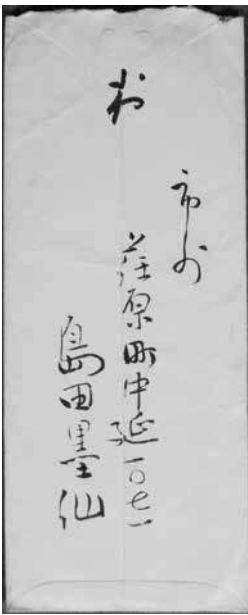 市外
荏原町中延一〇七一
島田墨仙